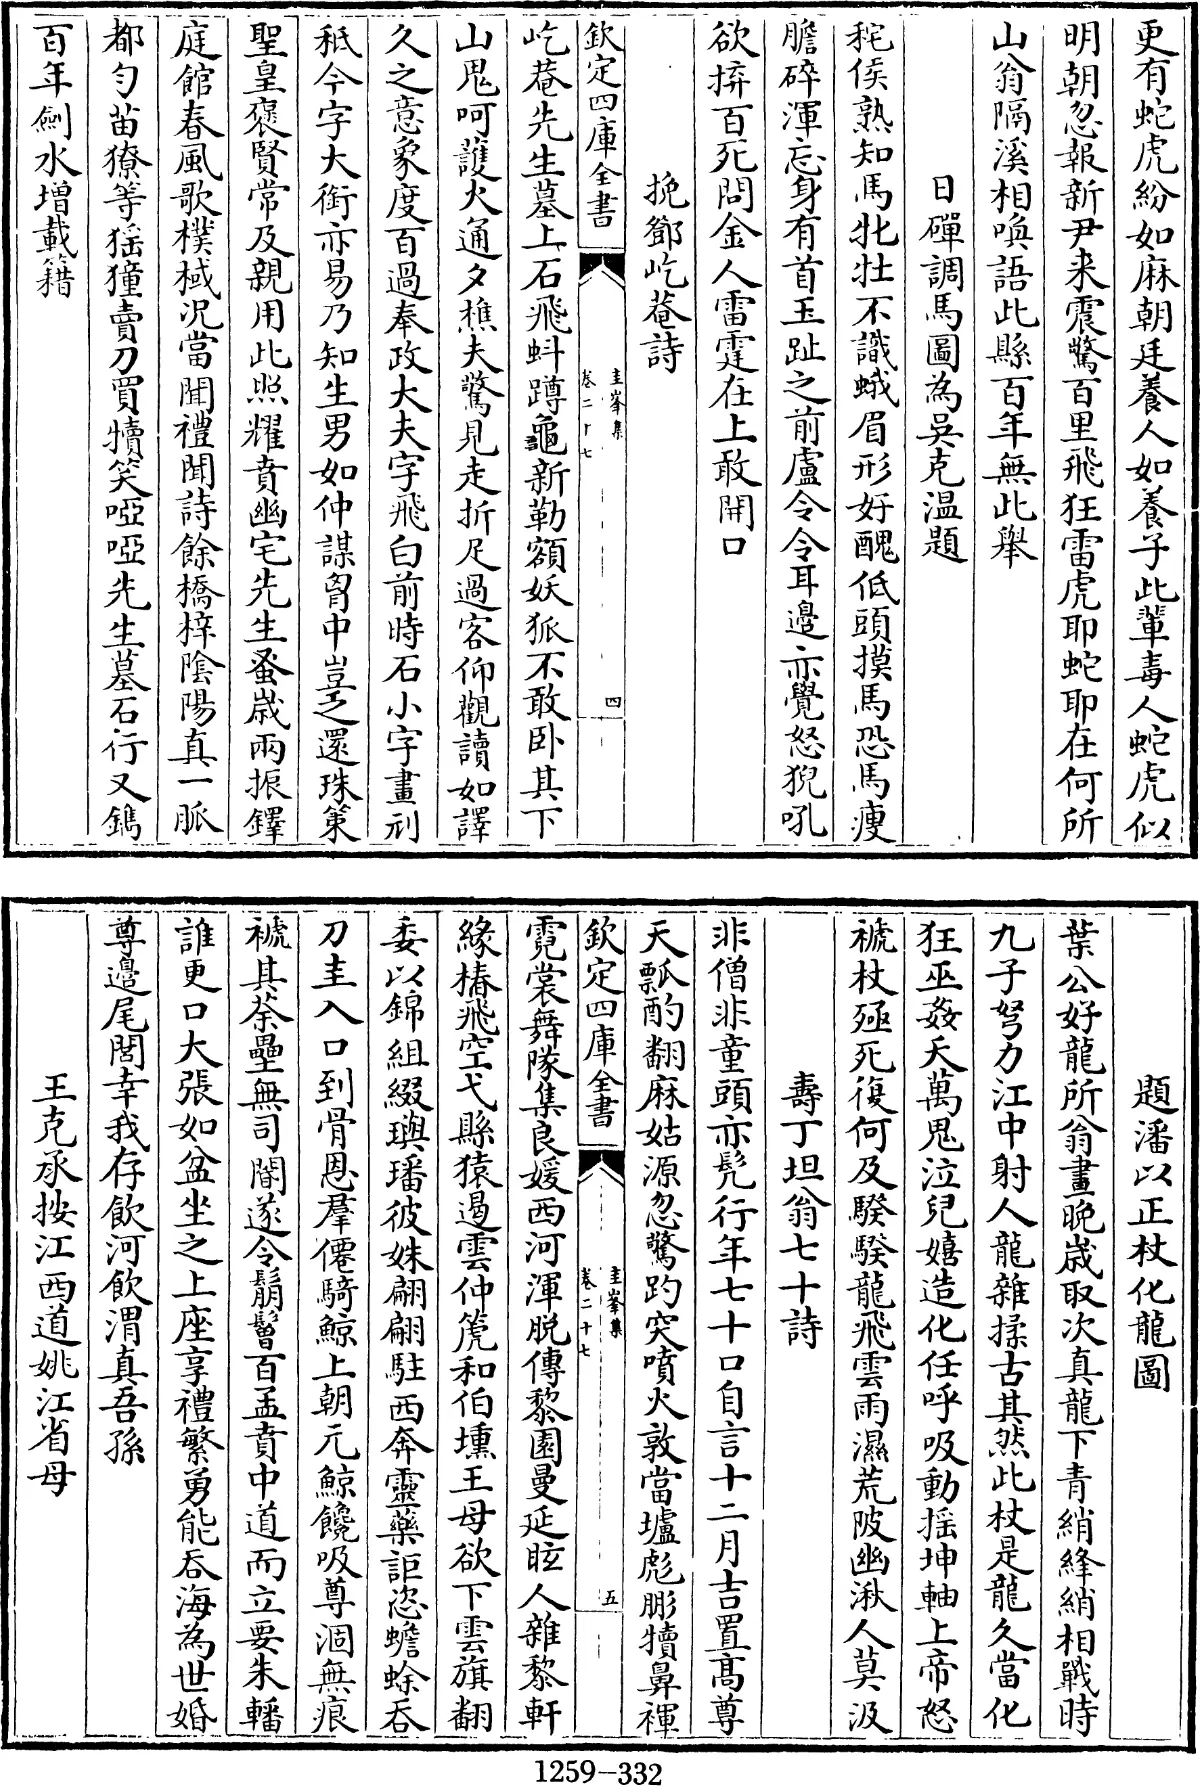 更有蛇虎紛如麻朝廷養人如養子此輩毒人蛇虎似
明朝忽報新尹来震驚百里飛狂雷虎耶蛇耶在何所
山翁隔溪相喚語此縣百年無此舉
日磾調馬圖為吳克温題
秺侯熟知馬牝牡不識蛾眉形好醜低頭摸馬恐馬瘦
膽碎渾忘身有首玉趾之前盧令令耳邉亦覺怒猊吼
欲拚百死問金人雷霆在上敢開口
挽鄧屹菴詩
欽定四庫全書
圭峯集
卷二十七
四
屹菴先生墓上石飛蚪蹲龜新勒額妖狐不敢卧其下
山鬼呵護火通夕樵夫驚見走折足過客仰觀讀如譯
久之意象度百過奉政大夫字飛白前時石小字畫刓
秪今字大衔亦易乃知生男如仲謀胷中豈乏還珠策
聖皇褒賢常及親用此照耀賁幽宅先生蚤歳兩振鐸
庭館春風歌樸棫况當聞禮聞詩餘橋梓陰陽真一脈
都勻苗獠等猺獞賣刀買犢笑啞啞先生墓石行又鐫
百年劍水增載籍
題潘以正杖化龍圖
葉公好龍所翁畫晩歳取次真龍下青綃絳綃相戰時
九子弩力江中射人龍雜揉古其然此杖是龍久當化
狂巫姦夭萬鬼泣兒嬉造化任呼吸動揺坤軸上帝怒
褫杖殛死復何及騤騤龍飛雲雨濕荒陂幽湫人莫汲
壽丁坦翁七十詩
非僧非童頭亦髠行年七十口自言十二月吉置髙尊
天瓢酌翻麻姑源忽驚趵突噴火敦當壚彪彫犢鼻褌
欽定四庫全書
圭峯集
卷二十七
五
霓裳舞隊集良媛西河渾脱傳黎園曼延眩人雜黎軒
緣椿飛空弋縣猿遏雲仲篪和伯壎王母欲下雲旗翻
委以錦組綴璵璠彼姝翩翩駐西奔靈藥詎恣蟾蜍吞
刀圭入口到骨恩羣僊騎鯨上朝元鯨饞吸尊涸無痕
褫其荼壘無司閽遂令鬅鬙百孟賁中道而立要朱轓
誰更口大張如盆坐之上座享禮繁勇能吞海為世婚
尊邉尾閭幸我存飲河飲渭真吾孫
王克承按江西道姚江省母
1259-332